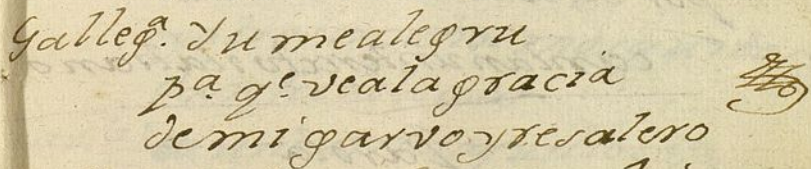 Galleg.ª Yu me alegru
p.ª q.e vea la gracia
de mi garvo y resalero